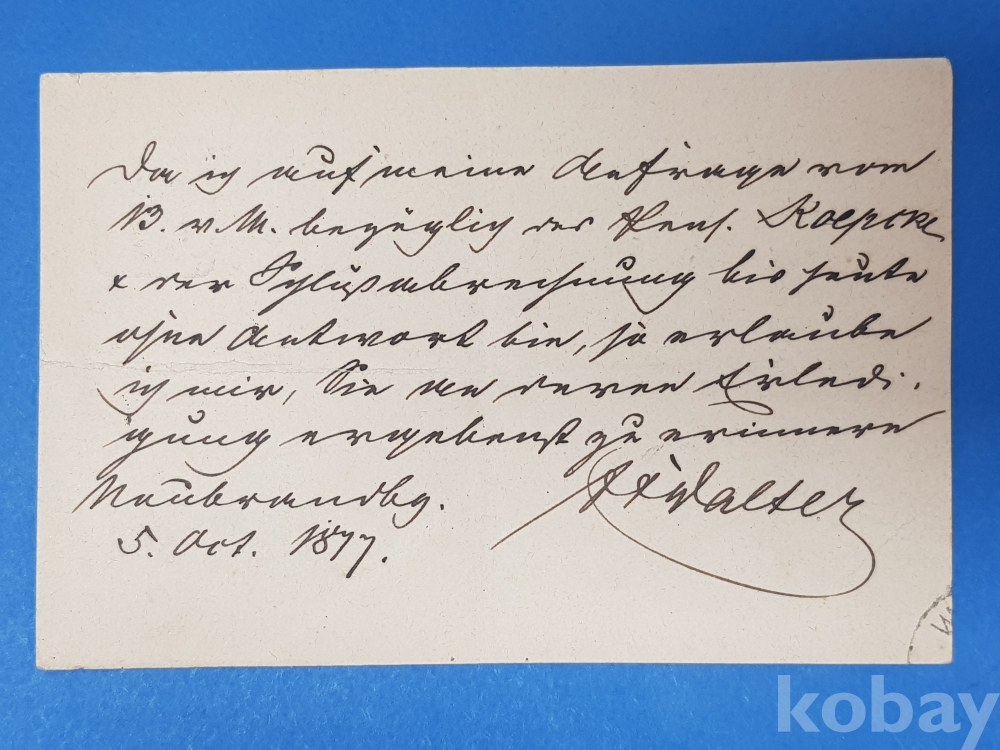 Da ich auf meine Anfrage vom
13. v. M. bezüglich der Pens. Koepcke
& der Schlußabrechnung bis heute
ohne Antwort bin, so erlaube
ich mir, Sie an deren Erledi-
gung ergebenst zu erinnern
Neubrandbg.
5. Oct. 1877.
Walter
kobay